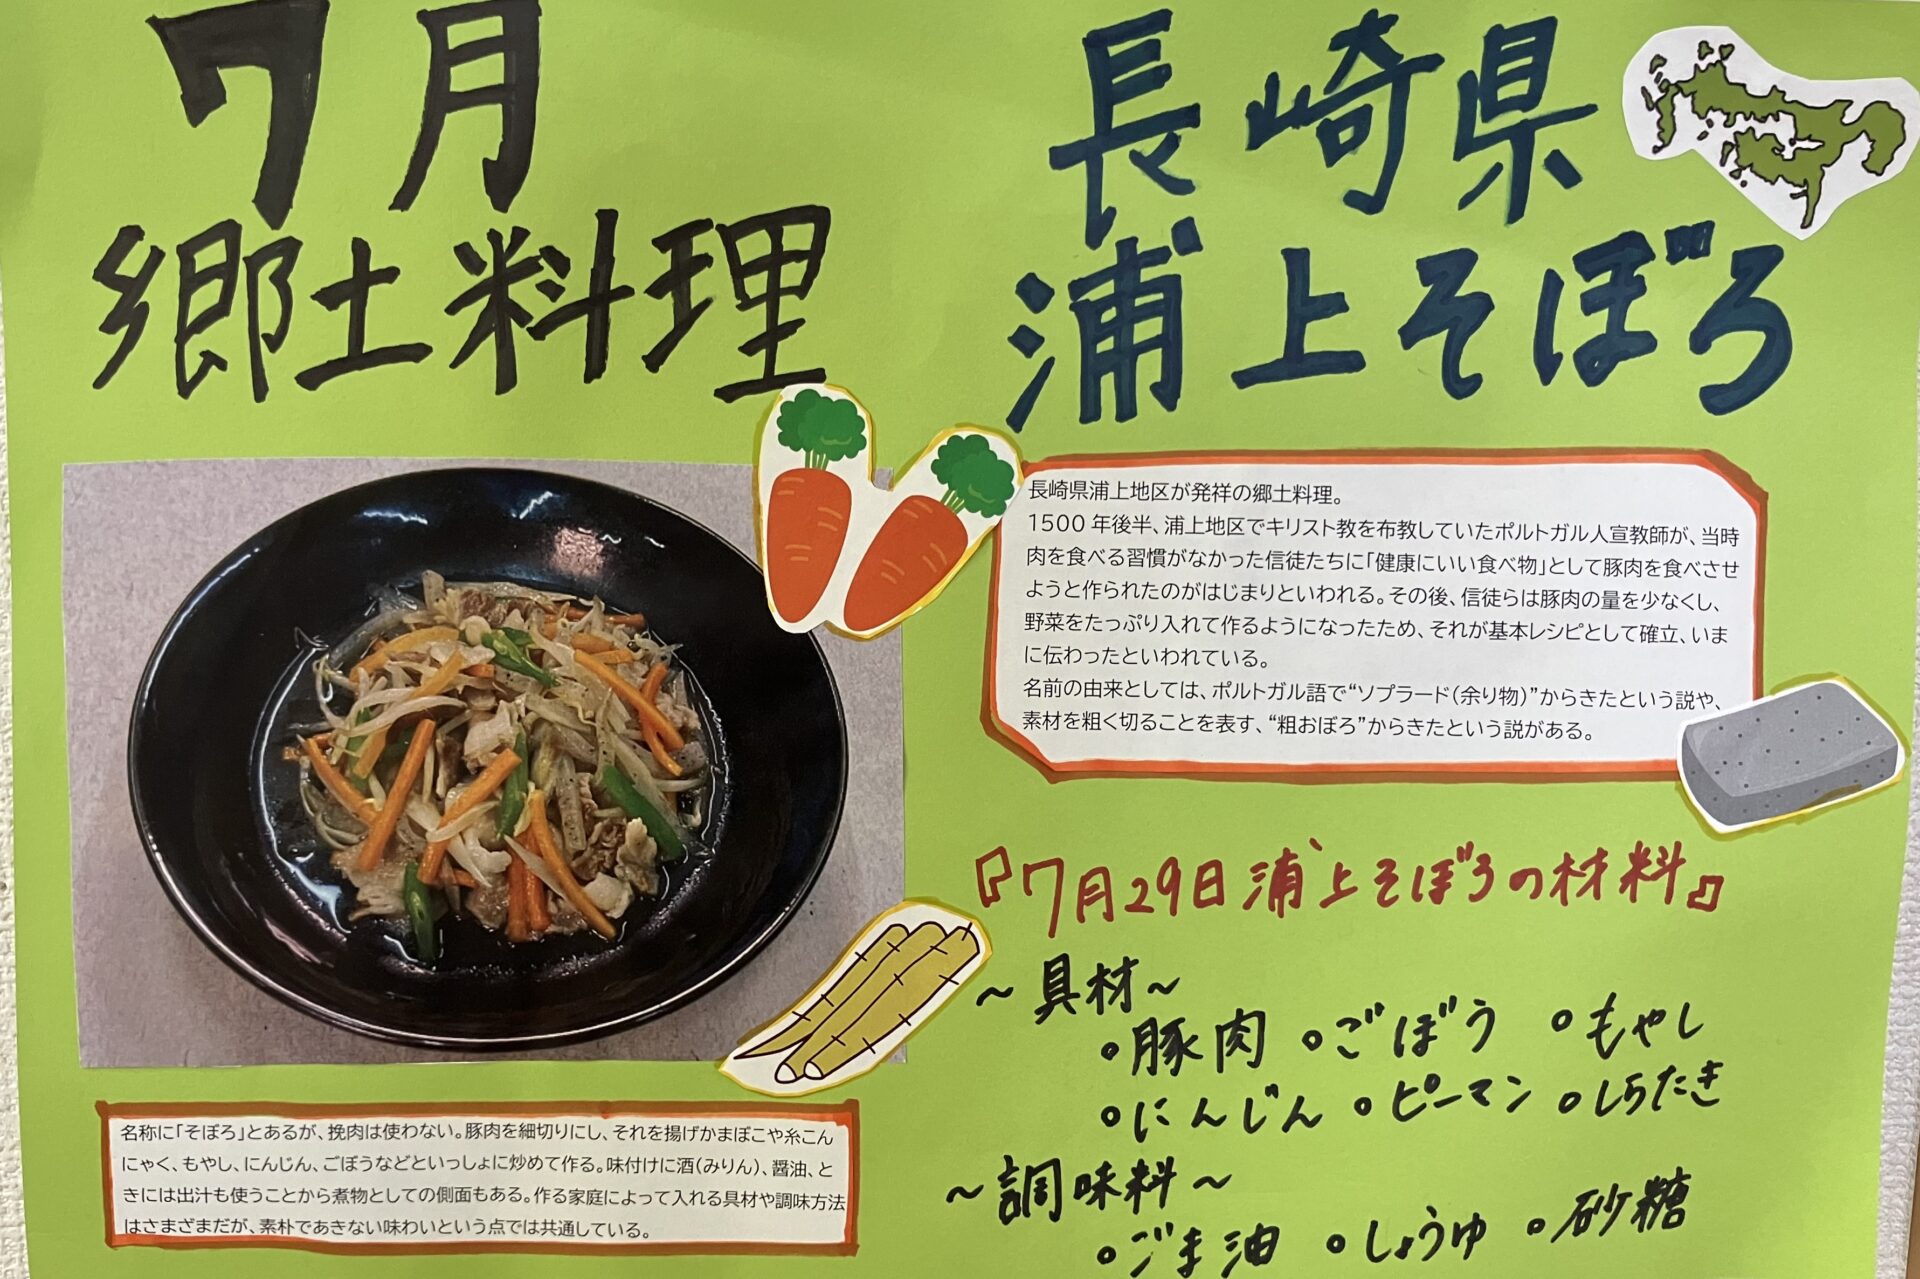 7月
郷土料理
長崎県
浦上そぼろ
長崎県浦上地区が発祥の郷土料理。
1500年後半、浦上地区でキリスト教を布教していたポルトガル人宣教師が、当時
肉を食べる習慣がなかった信徒たちに「健康にいい食べ物」として豚肉を食べさせ
ようと作られたのがはじまりといわれる。その後、信徒らは豚肉の量を少なくし、
野菜をたっぷり入れて作るようになったため、それが基本レシピとして確立、いま
に伝わったといわれている。
名前の由来としては、ポルトガル語で“ソプラード(余り物)”からきたという説や、
素材を粗く切ることを表す、“粗おぼろ”からきたという説がある。
名称に「そぼろ」とあるが、挽肉は使わない。豚肉を細切りにし、それを揚げかまぼこや糸こん
にゃく、もやし、にんじん、ごぼうなどといっしょに炒めて作る。味付けに酒(みりん)、醤油、と
きには出汁も使うことから煮物としての側面もある。作る家庭によって入れる具材や調味方法
はさまざまだが、素朴であきない味わいという点では共通している。
『7月29日浦上そぼろの材料』
～具材～
・豚肉 ・ごぼう ・もやし
・にんじん ・ピーマン ・しらたき
～調味料～
・ごま油 ・しょうゆ ・砂糖